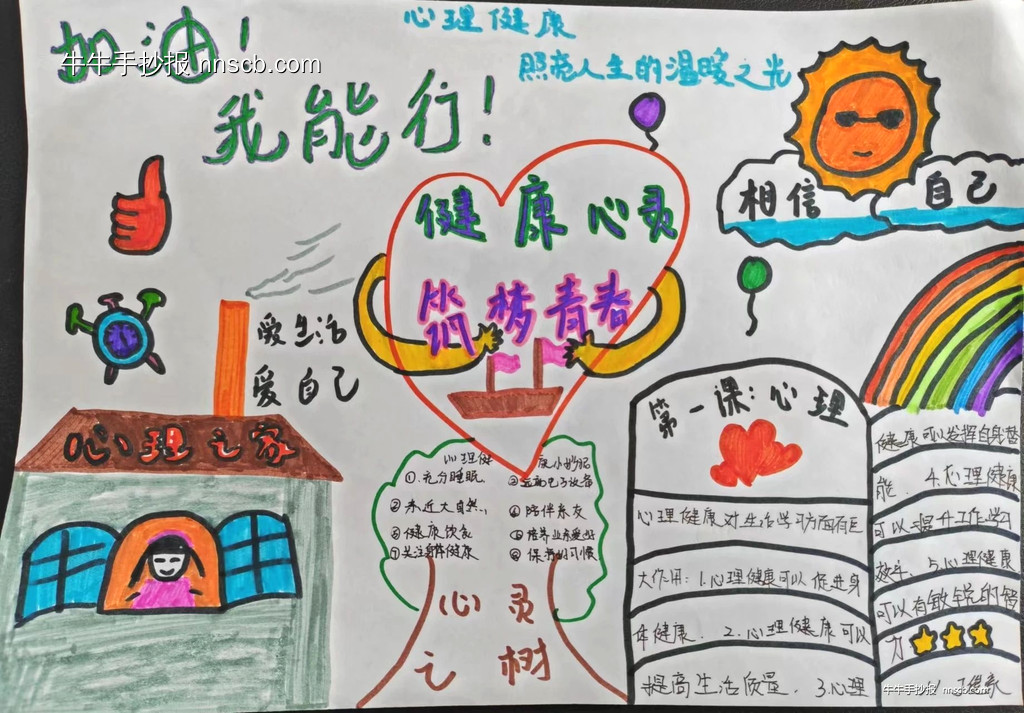 加油！
牛牛手抄报 nnscb.com
我能行！
心理健康
照亮人生的温暖之光
相信 自己
健康心灵
筑梦青春
爱生活
爱自己
心理之家
心理健康小妙招
①充分睡眠
②远离电子设备
③亲近大自然
④陪伴亲友
⑤健康饮食
⑥培养业余爱好
⑦关注身体健康
⑧保持好习惯
心灵
之树
第一课：心理
心理健康对生活学习方面有巨
大作用：1.心理健康可以促进身
体健康. 2.心理健康可以
提高生活质量. 3.心理
健康可以发挥自身潜
能. 4.心理健康
可以提升工作学习
效率. 5.心理健康
可以有敏锐的智
力
牛牛手抄报 nnscb.com